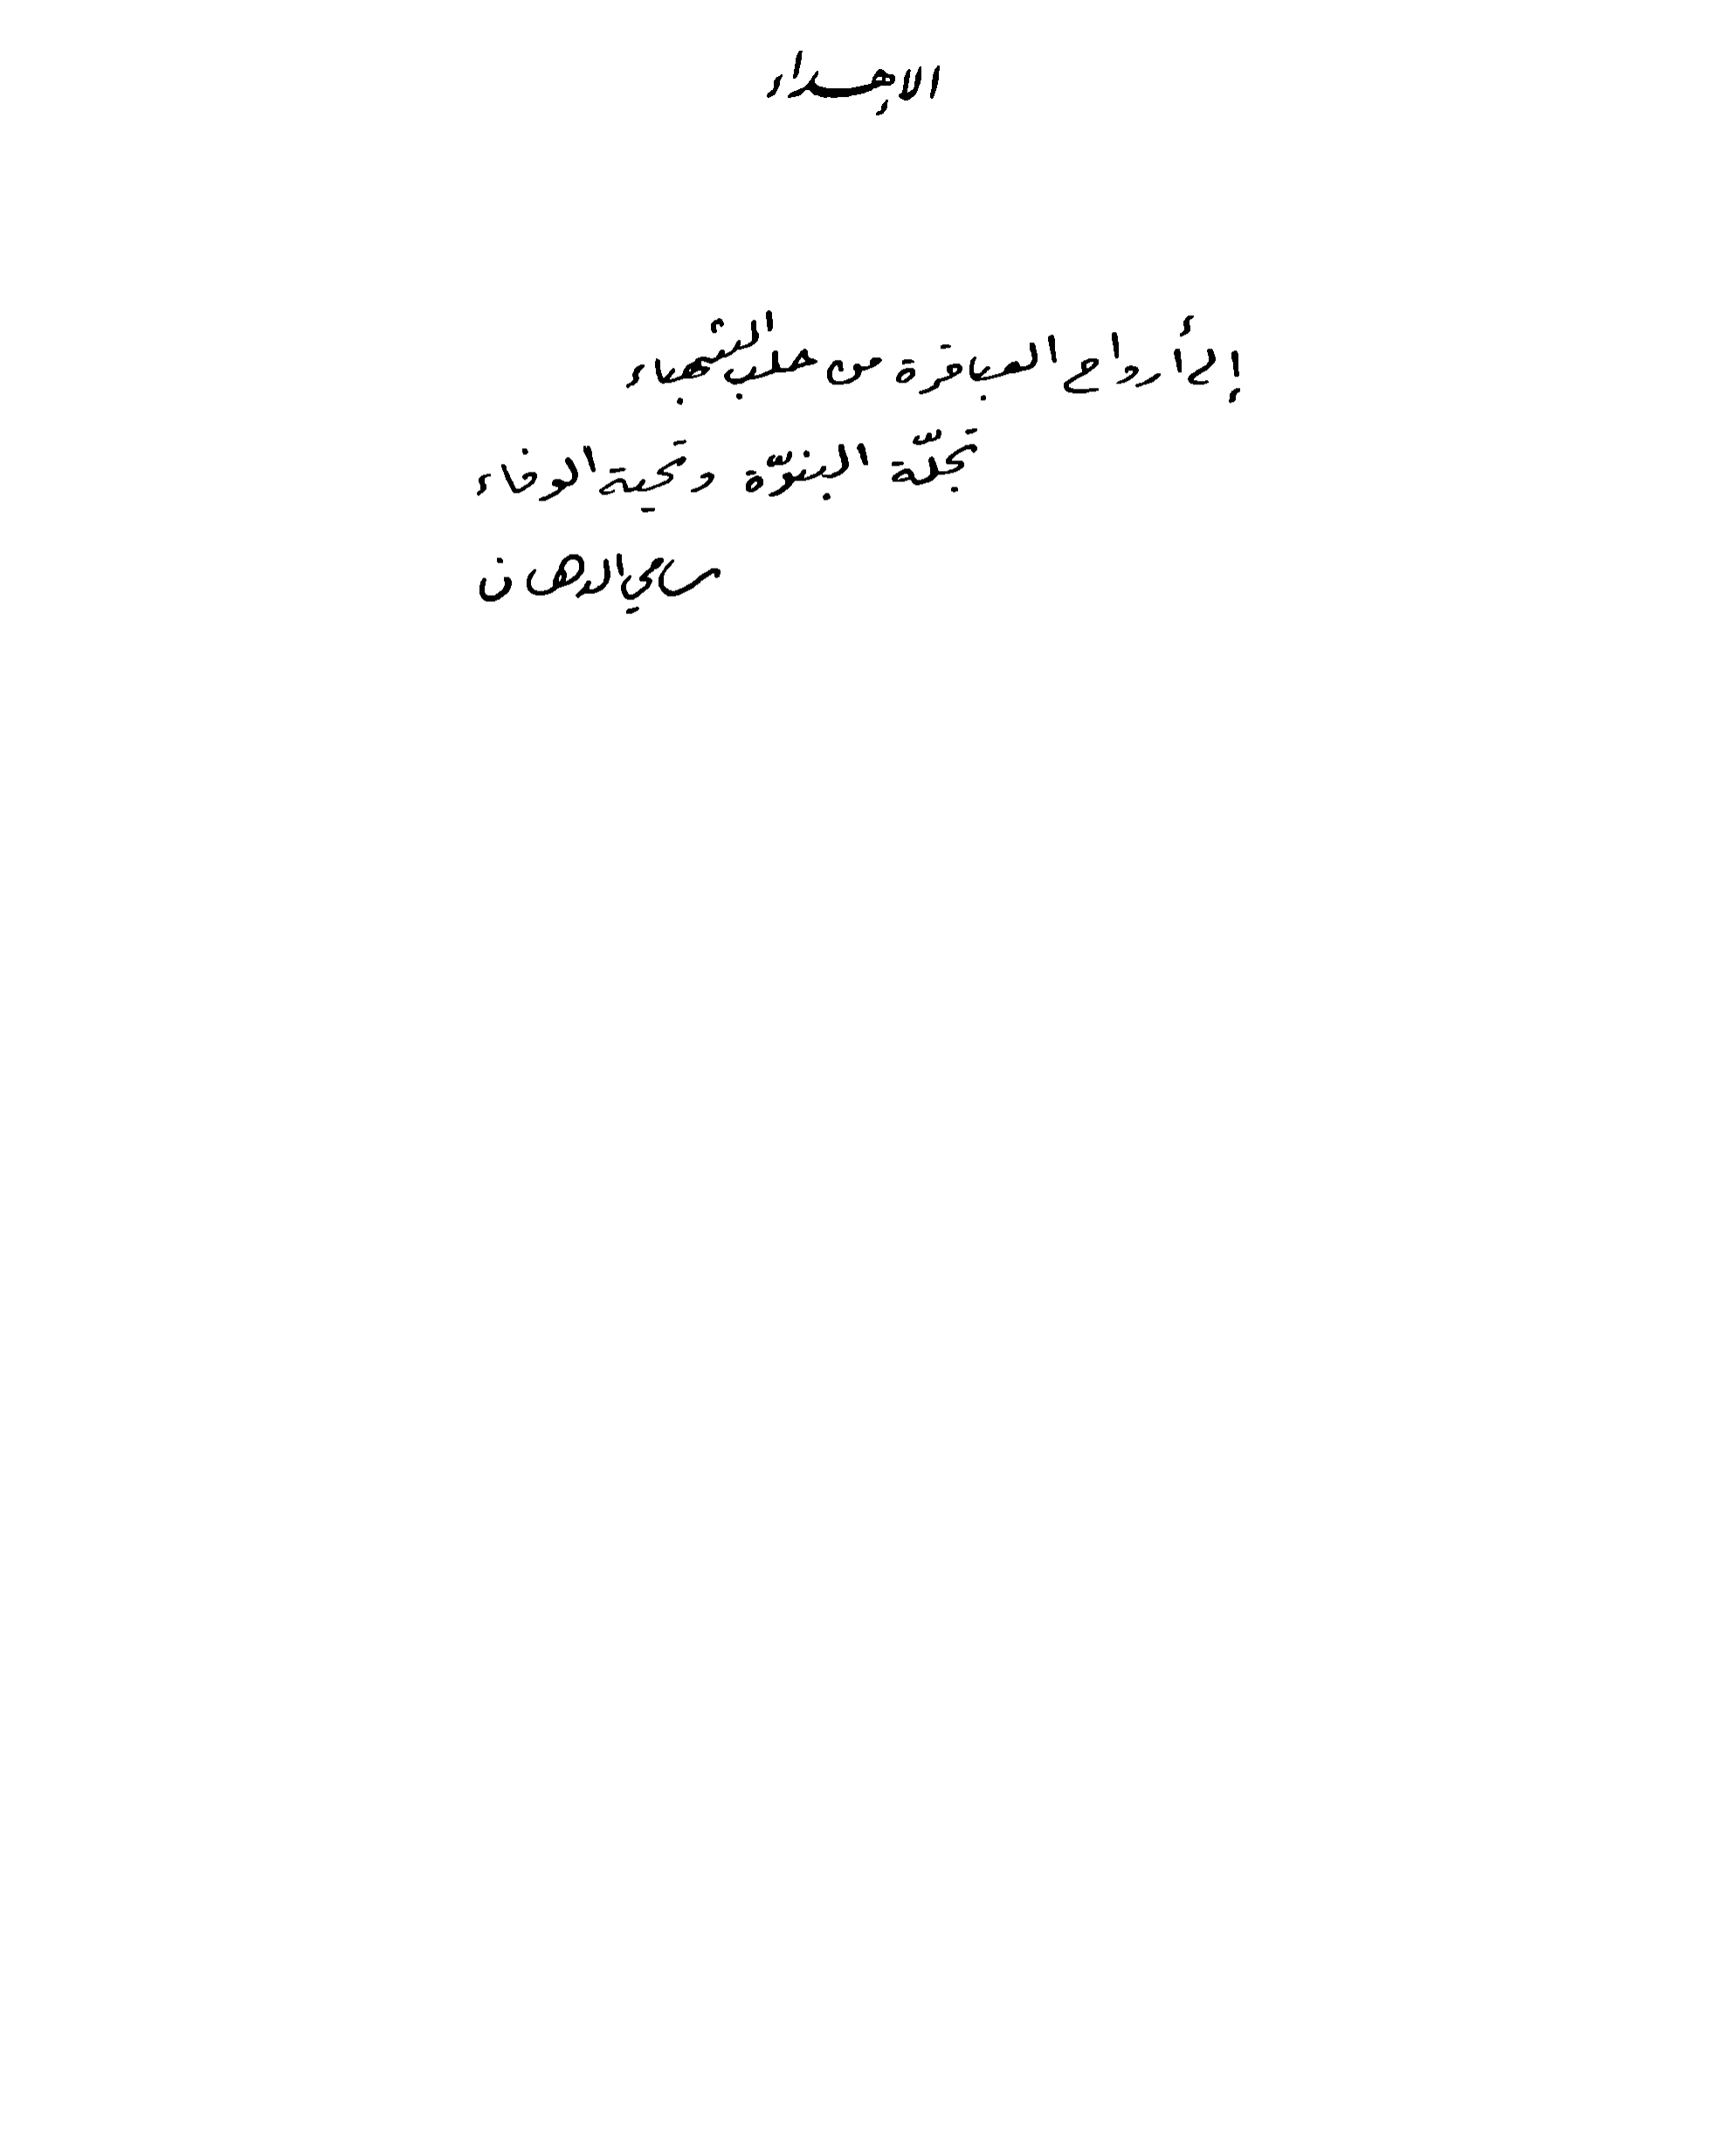 الإهداء
إلى أرواح العباقرة من حلب الشهباء
تجلّة البنوّة وتحية الوفاء
سامي الدهان